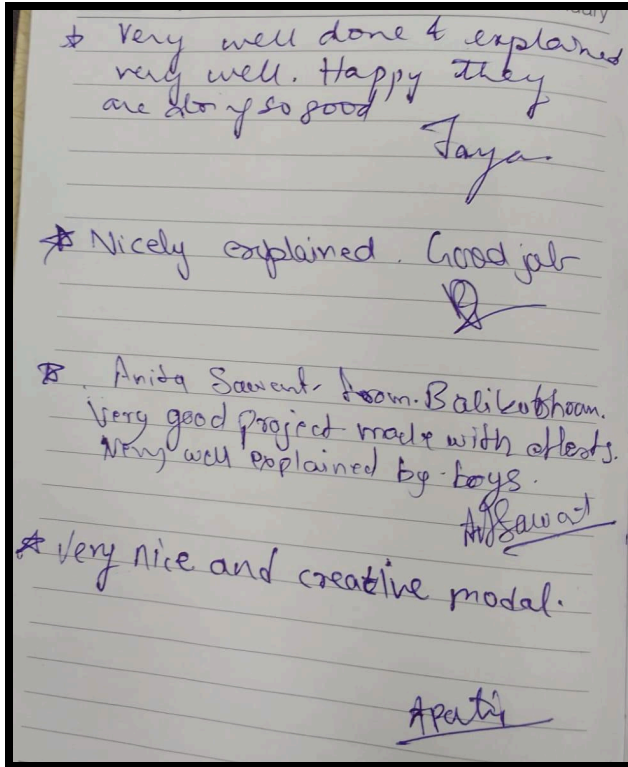 very well done & explained
very well. Happy they
are doing so good
Jaya
Nicely explained. Good job
Anita Sawant from
Very good project made with efforts.
Very well explained by boys.
Sawant
Very nice and creative modal.
Apatil